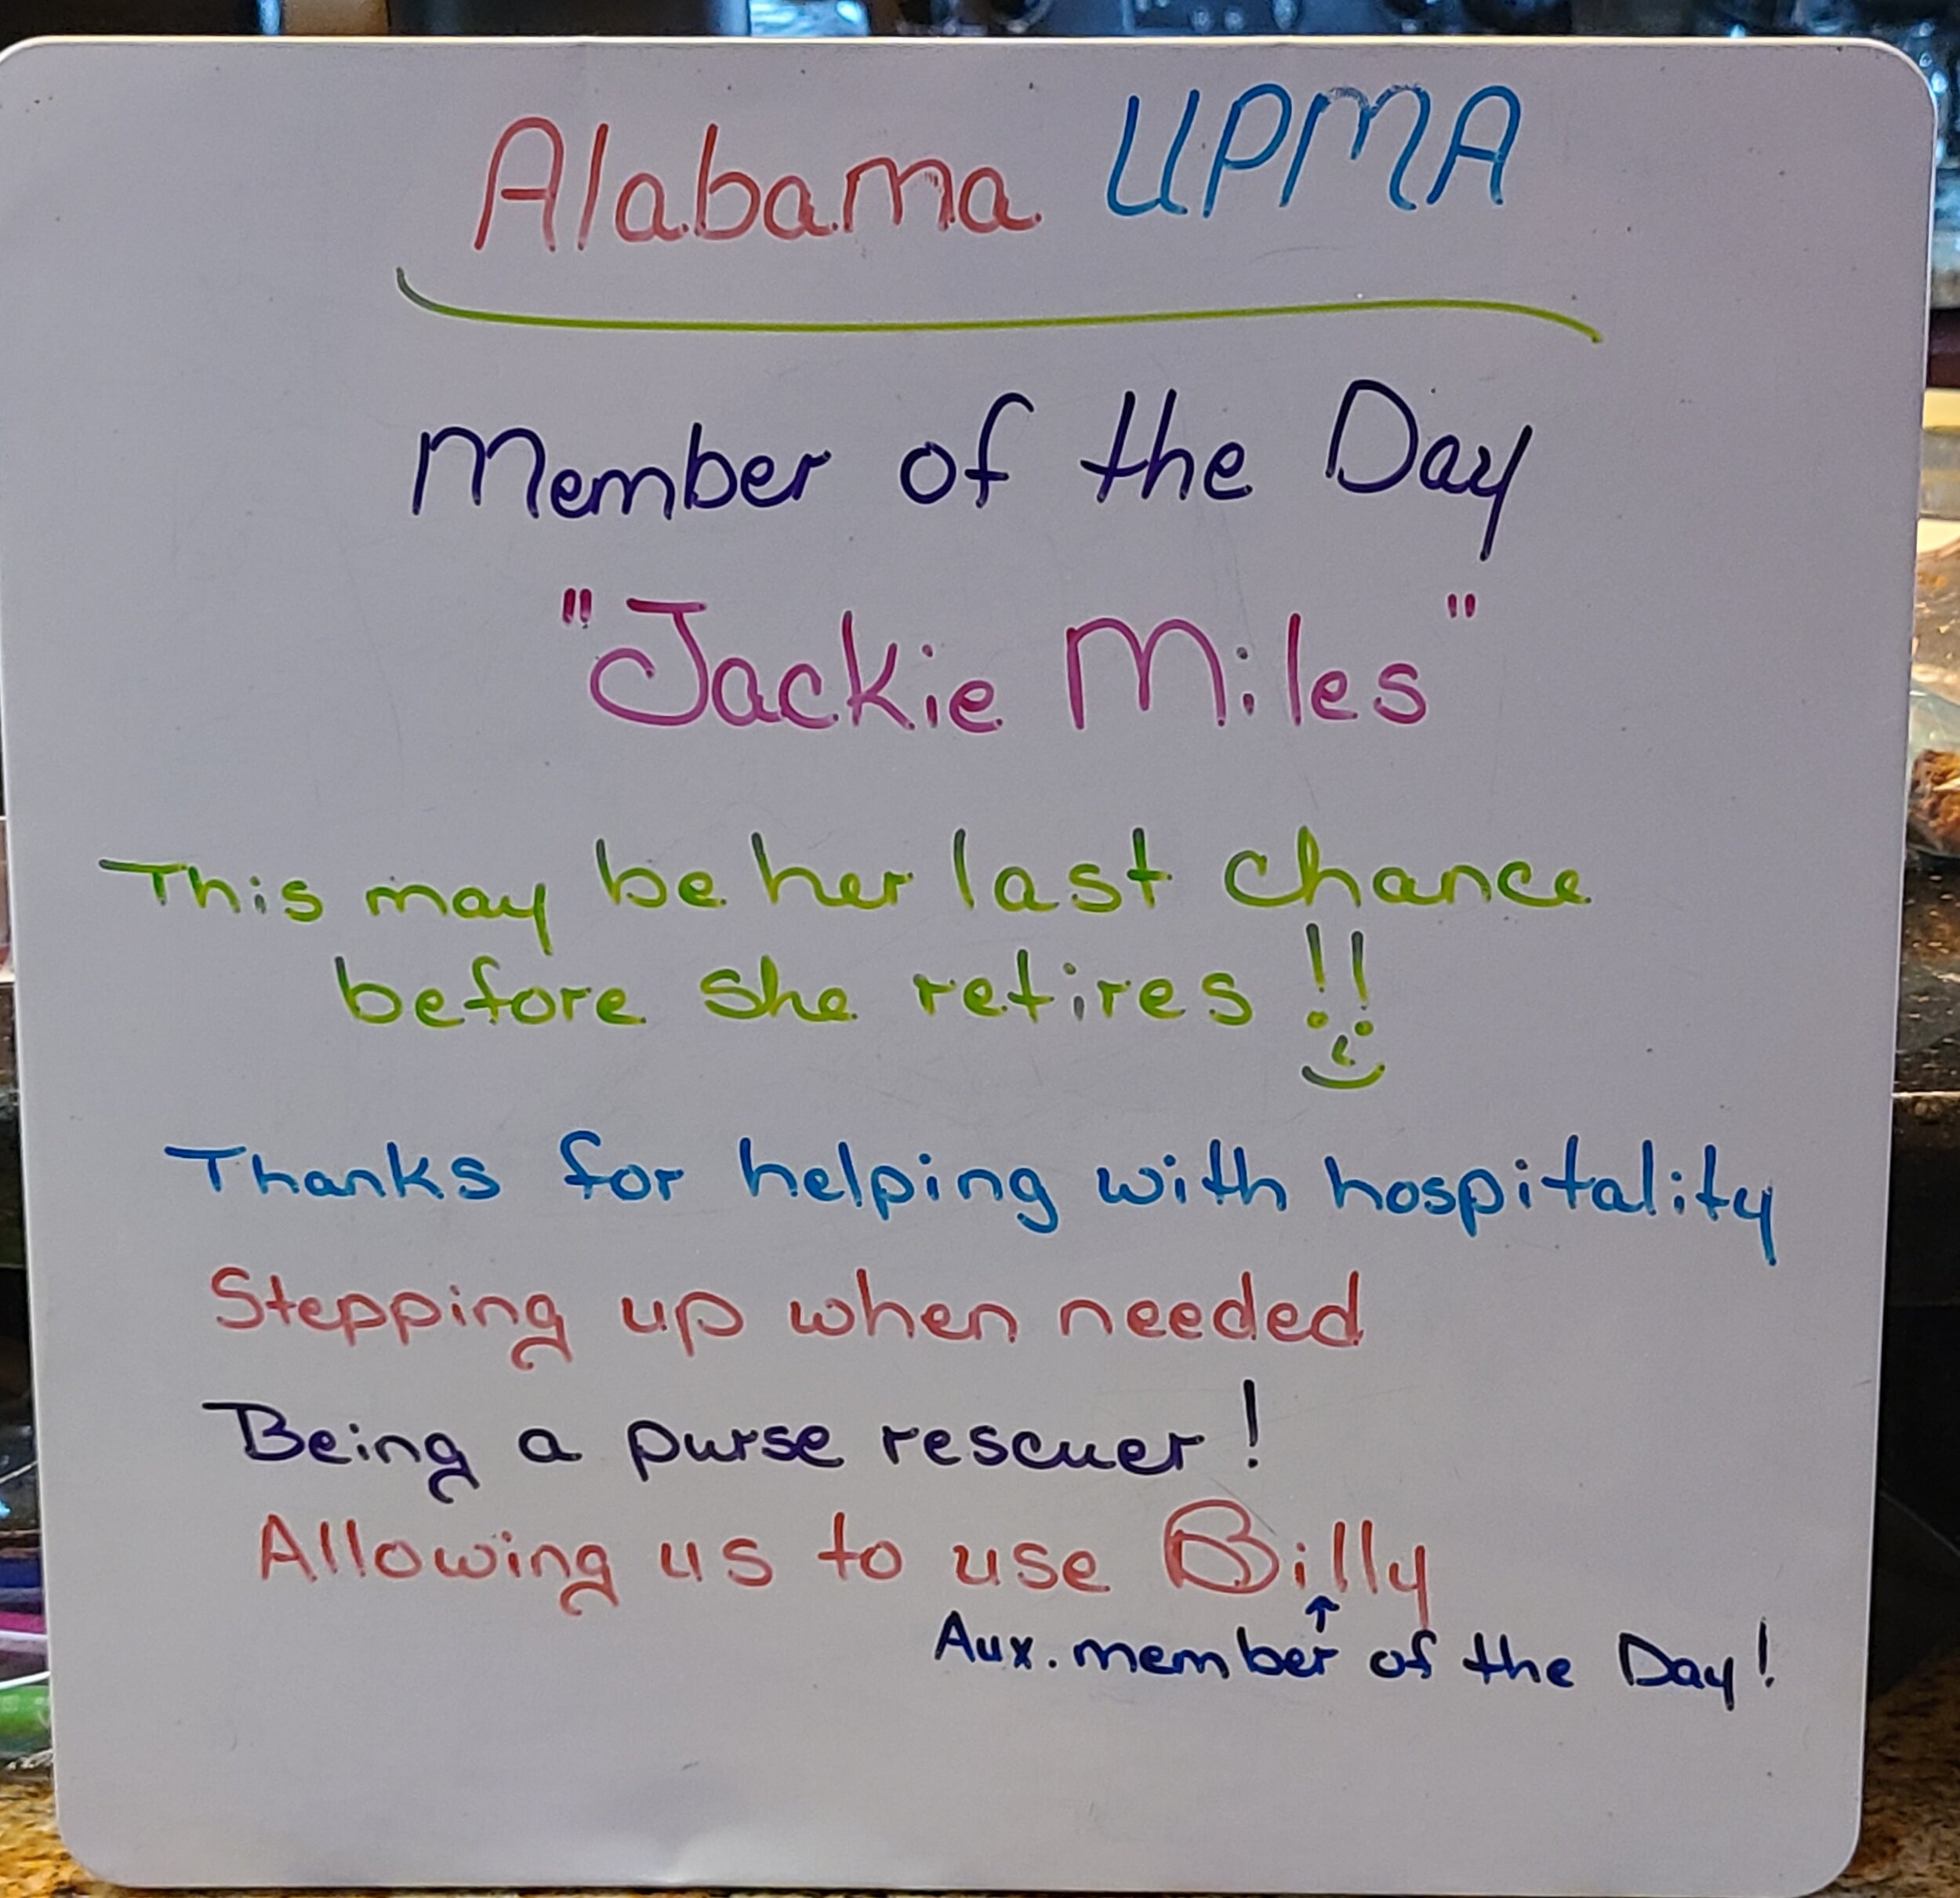 Alabama UPMA
Member of the Day
"Jackie Miles"
This may be her last chance
before she retires !!
Thanks for helping with hospitality
Stepping up when needed
Being a purse rescuer!
Allowing us to use Billy
↑
Aux. member of the Day!